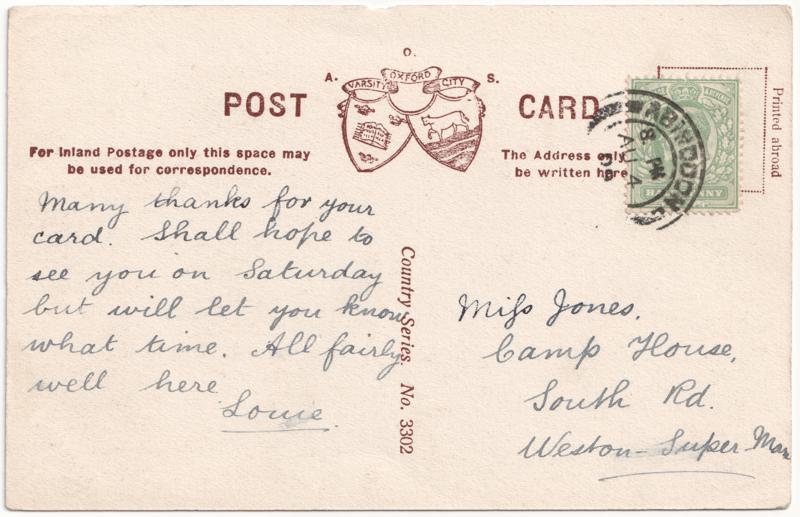 A. O. S.
VARSITY OXFORD CITY
POST CARD
Printed abroad
For Inland Postage only this space may
be used for correspondence.
The Address only
be written here
ABINGDON
8 PM
AU 4
HALFPENNY
Many thanks for your
card. Shall hope to
see you on Saturday
but will let you know
what time. All fairly
well here
Louie.
Country Series. No. 3302
Miſs Jones.
Camp House,
South Rd.
Weston-Super-Mare